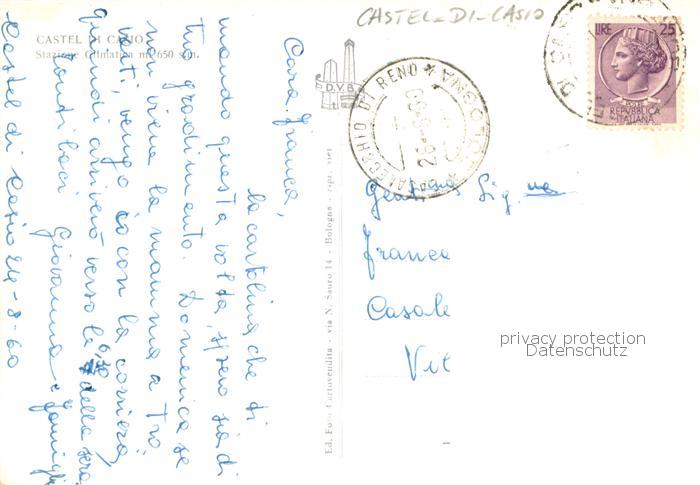 CASTEL-DI-CASIO
CASTEL DI CASIO
Stazione Climatica m. 650 s.m.
Cara Franca,
la cartolina che ti
mando questa volta, spero sia di
tuo gradimento. Domenica se
non viene la mamma a tro
varti, vengo io con la corriera,
quindi arriverò verso le 6,30 della sera.
Tanti baci
Giovanna e famiglia
Castel di Casio 24-8-60
D.V.B.
Ed. Foto Cartovendita - via N. Sauro 14 - Bologna -
CASALECCHIO DI RENO
BOLOGNA
26-8-60
LIRE 25
POSTE
REPUBBLICA
ITALIANA
Sig.na
Franca
Casale
Vil
privacy protection
Datenschutz